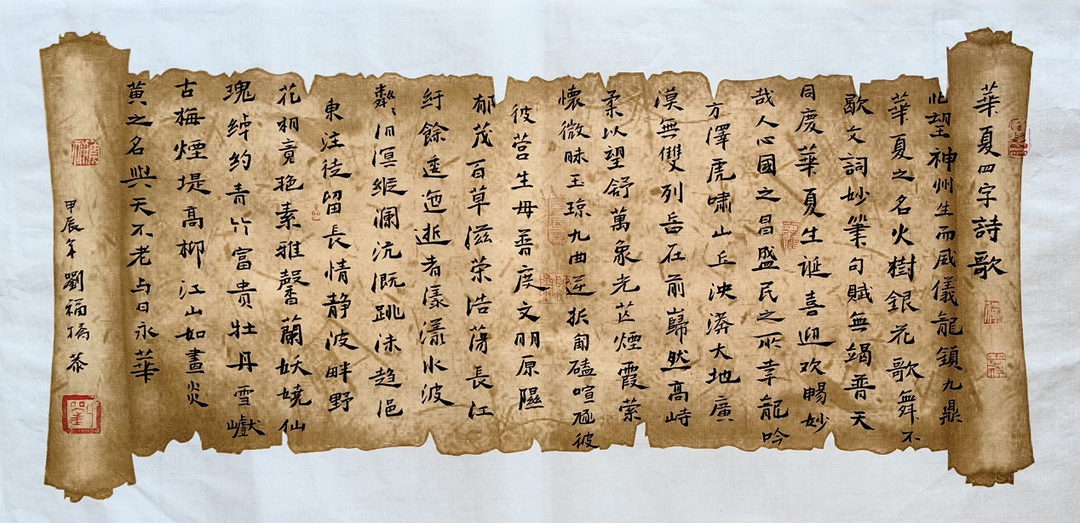 華夏四字詩歌
北望神州生而威儀龍鎮九鼎
華夏之名火樹銀花歌舞不
歇文詞妙筆句賦無竭普天
同慶華夏生誕喜迎欢暢妙
哉人心國之昌盛民之所幸龍吟
方澤虎嘯山丘泱漭大地廣
漠無雙列岳在前巋然高峙
柔以望舒萬象光芒煙霞縈
懷微昧玉琼九曲逆折甸磕喧 彼
彼营生母普度文明原隰
郁茂百草滋荣浩荡長江
紆餘逶迤逝者漾漾水波
粼汩溟緃澜沆溉跳沫趋浥
東注徒留長情静波畔野
花栩竟艳素雅馨蘭妖娆仙
瑰绰約青竹富贵牡丹雪巘
古梅煙堤高柳江山如畫炎
黄之名與天不老与日永華
甲辰年劉福 恭